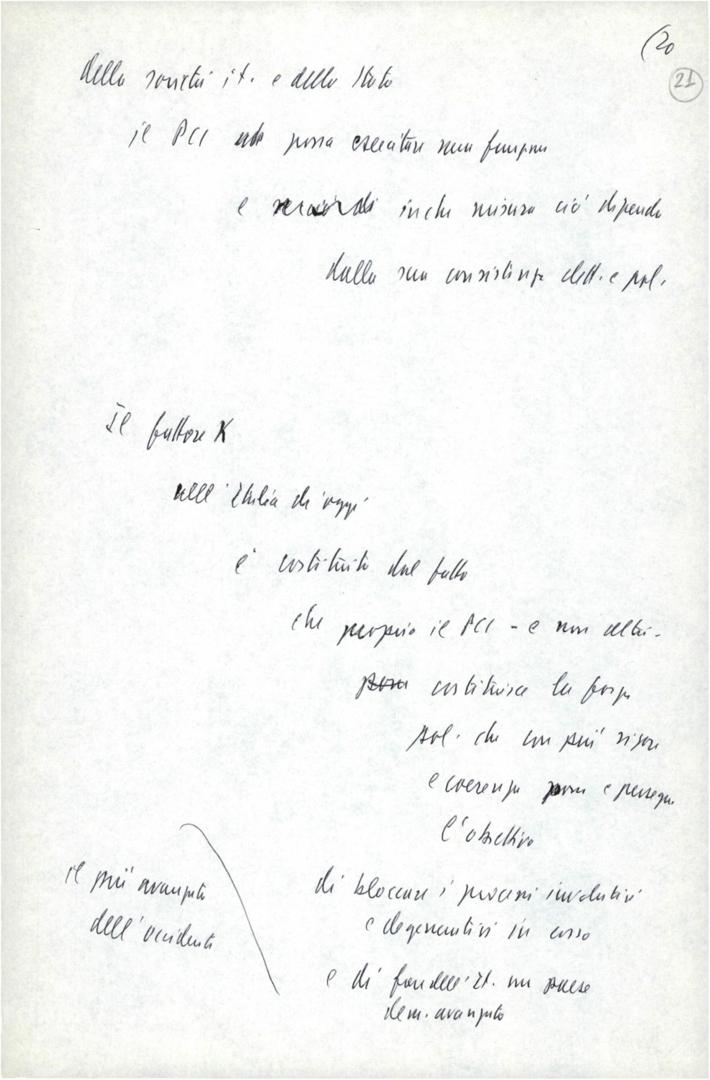 (20
21
della società it. e dello Stato
il PCI possa esercitare sua funzione
e in che misura ciò dipenda
dalla sua consistenza elett. e pol.
Il fattore K
nell'Italia di oggi
è costituito dal fatto
che proprio il PCI - e non altri -
costituisce la forza
pol. che con più rigore
e coerenza pone e persegue
l'obiettivo
di bloccare i processi involutivi
e degenerativi in corso
e di fare dell'It. un paese
dem. avanzato
il più avanzato
dell'occidente